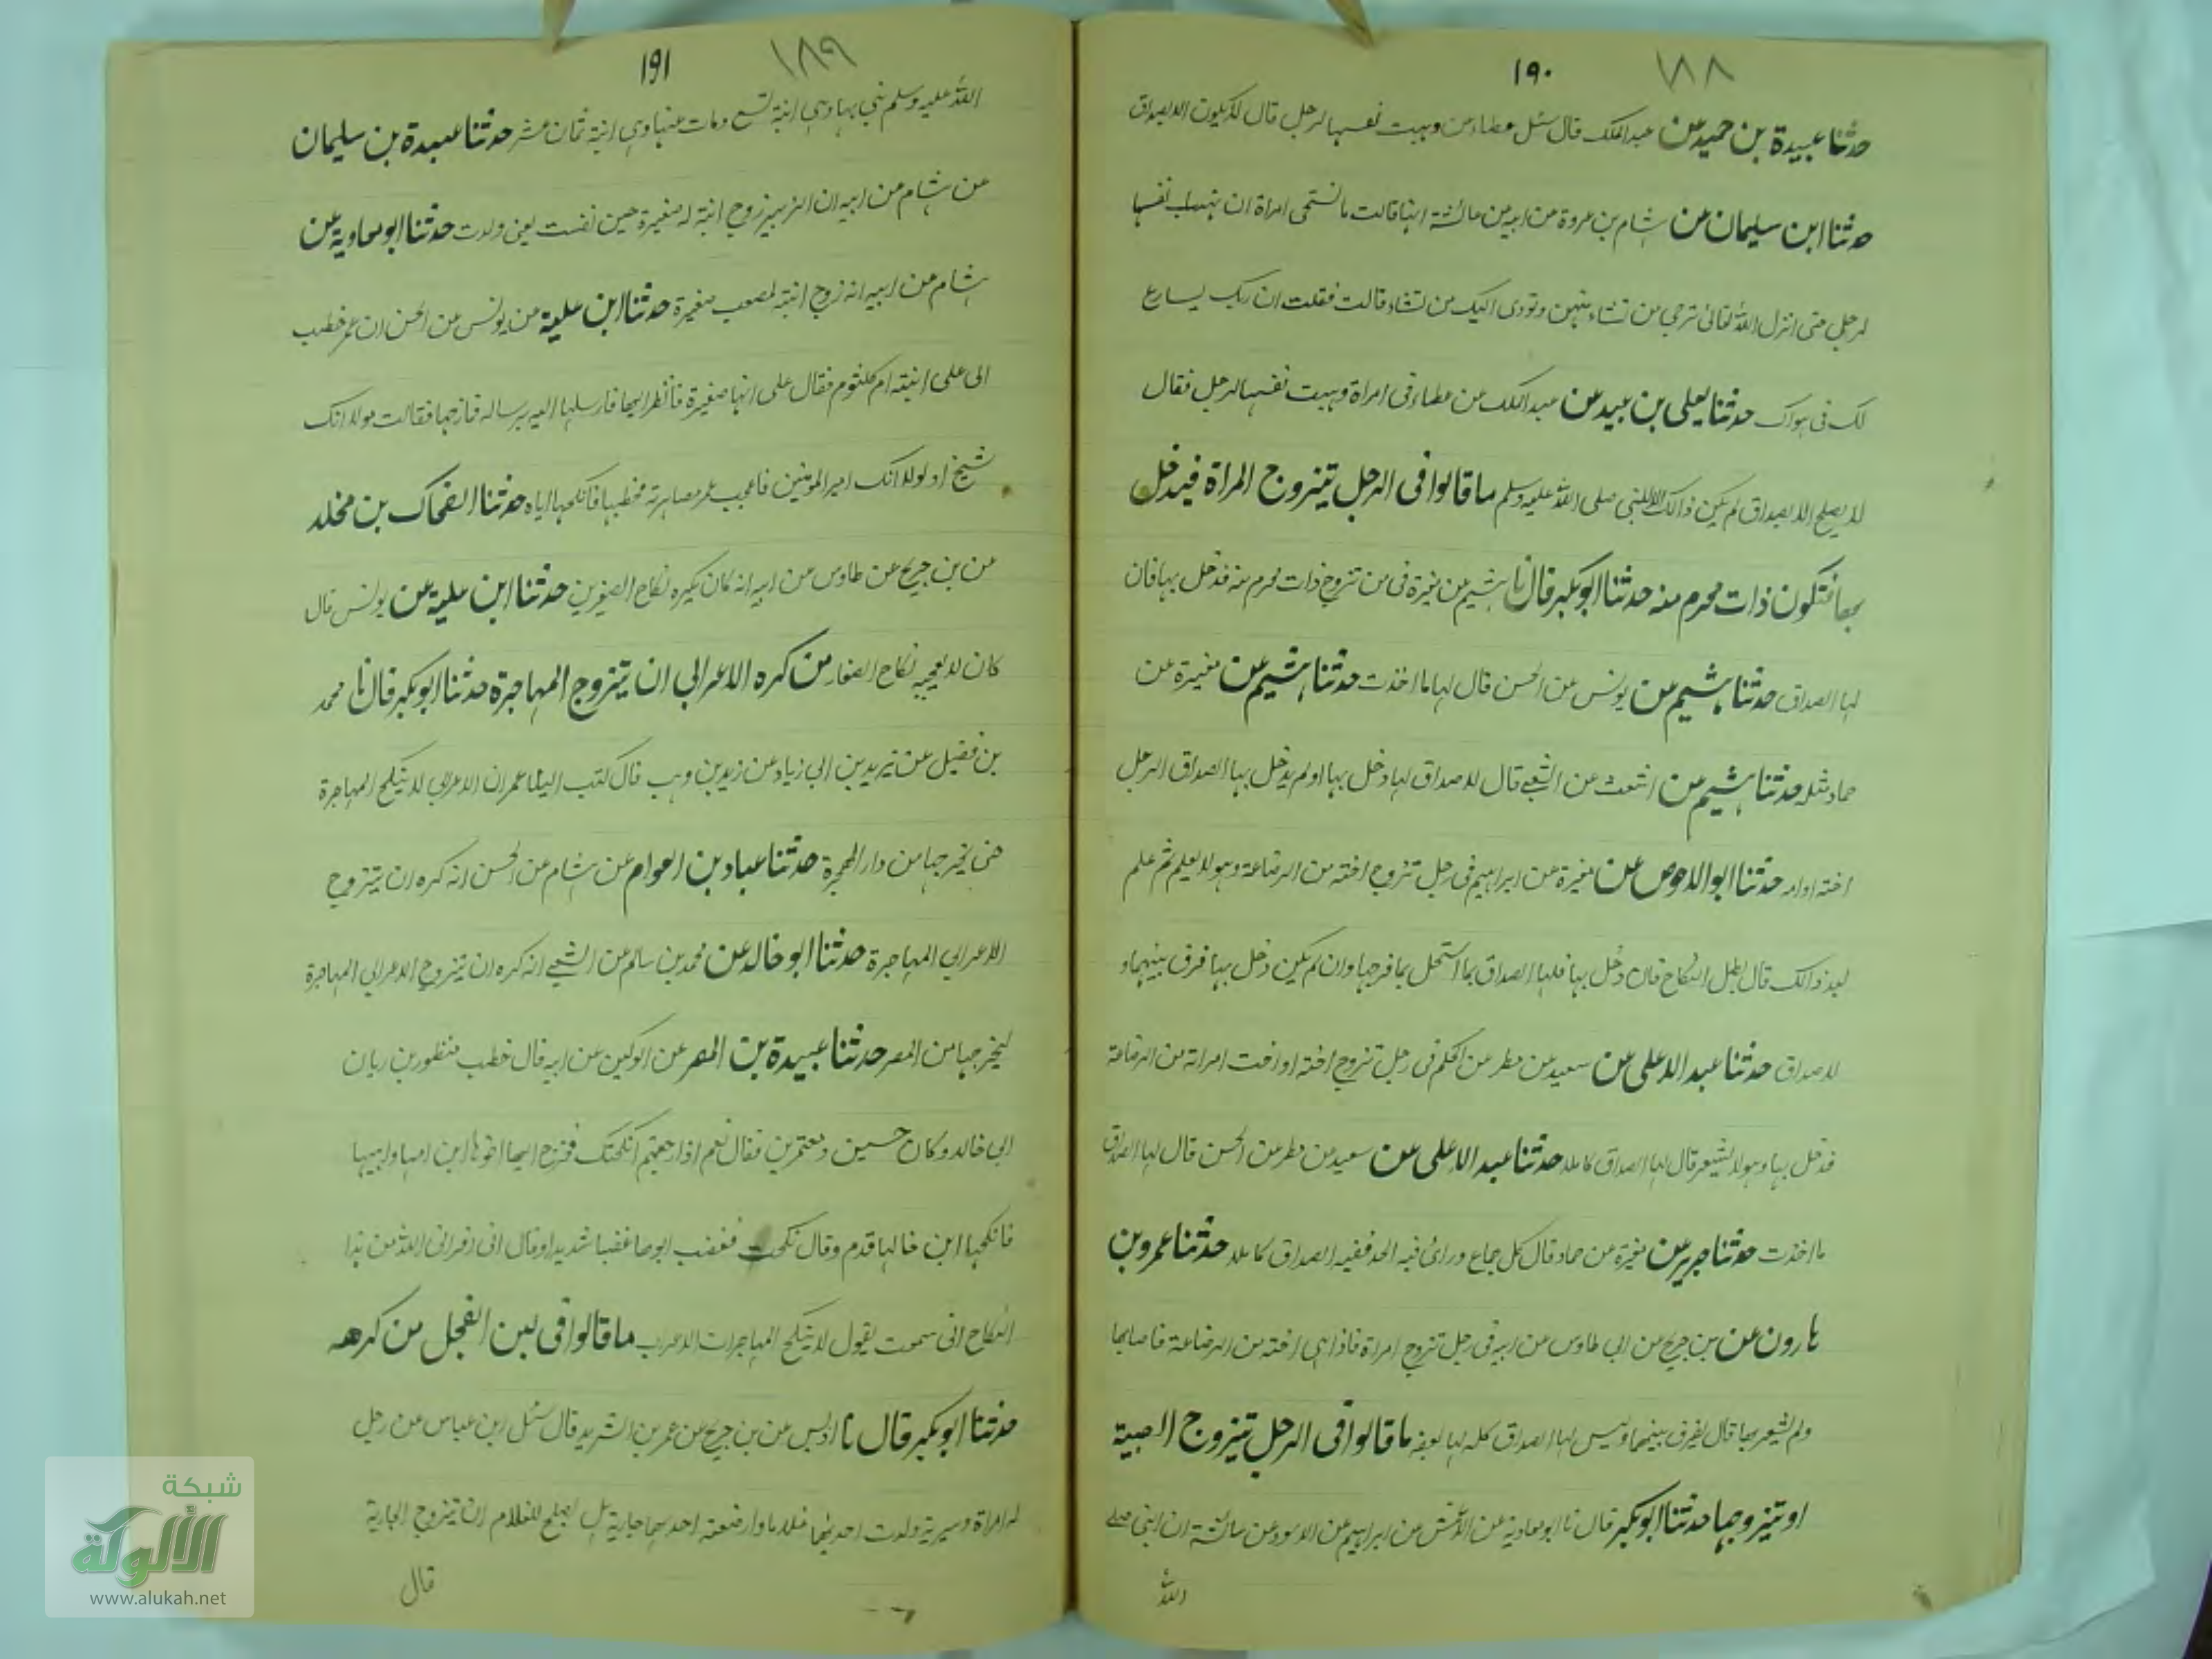 ١٨٨
١٩٠
حدثنا عبيدة بن حميد عن عبد الملك قال سئل عطاء عن وهبت نفسها لرجل قال لا يكون الا بصداق
حدثنا ابن سليمان عن هشام بن عروة عن ابيه عن عائشة انها قالت ما تستحي امراة ان تهب نفسها
لرجل حتى انزل الله تعالى ترجي من تشاء منهن وتووي اليك من تشاء قالت فقلت ان ربك ليسارع
لك في هواك حدثنا يعلى بن عبيد عن عبد الملك عن عطاء في امراة وهبت نفسها لرجل فقال
لا يصلح الا بصداق لم يكن ذالك الا للنبي صلى الله عليه وسلم ما قالوا في الرجل يتزوج المراة فيدخل
بها فتكون ذات محرم منه حدثنا ابو بكر قال نا هشيم عن مغيرة في من تزوج ذات محرم منه فدخل بها فان
لها الصداق حدثنا هشيم عن يونس عن الحسن قال لها ما اخذت حدثنا هشيم عن مغيرة عن
حماد مثله حدثنا هشيم عن اشعث عن الشعبي قال لا صداق لها دخل بها او لم يدخل بها الصداق الرجل
اخته او امه حدثنا ابو الاحوص عن مغيرة عن ابراهيم في رجل تزوج اخته من الرضاعة وهو لا يعلم ثم علم
بعد ذالك قال بطل النكاح فان دخل بها فلها الصداق بما استحل بها فرجها وان لم يكن دخل بها فرق بينهما و
لا صداق حدثنا عبد الاعلى عن سعيد عن مطر عن الحكم في رجل تزوج اخته او اخت امراته من الرضاعة
فدخل بها وهو لا يشعر قال لها الصداق كاملا حدثنا عبد الاعلى عن سعيد عن مطر عن الحسن قال لها الصداق
ما اخذت حدثنا جرير عن مغيرة عن حماد قال كل جماع ورائ فيه الحد ففيه الصداق كاملا حدثنا عمرو بن
هارون عن بن جريج عن ابي طاوس عن ابيه في رجل تزوج امراة فاذا هي اخته من الرضاعة فاصابها
ولم يشعر بها قال يفرق بينهما وليس لها الصداق كله لها بعضه ما قالوا في الرجل يتزوج الصبية
او يتزوجها حدثنا ابو بكر قال نا ابو معاوية عن الاعمش عن ابراهيم عن الاسود عن عائشة ان النبي صلى
الله
١٨٩
١٩١
الله عليه وسلم بني بها وهي ابنة تسع ومات عنها وهي ابنة ثمان عشر حدثنا عبدة بن سليمان
عن هشام عن ابيه ان الزبير زوج ابنة له صغيرة حين نفست يعني ولدت حدثنا ابو معاوية عن
هشام عن ابيه انه زوج ابنته لمصعب صغيرة حدثنا ابن علية عن يونس عن الحسن ان عمر خطب
الى على ابنته ام كلثوم فقال على انها صغيرة فانظر اليها فارسلها اليه برسالة فمازحها فقالت لولا انك
شيخ او لولا انك امير المومنين فاعجب عمر مصاهرته فخطبها فانكحها اياه حدثنا الضحاك بن مخلد
عن بن جريج عن طاوس عن ابيه انه كان يكره نكاح الصغيرين حدثنا ابن علية عن يونس قال
كان لا يعجبه نكاح الصغار من كره الاعرابي ان يتزوج المهاجرة حدثنا ابو بكر قال نا محمد
بن فضيل عن يزيد بن ابي زياد عن زيد بن وهب قال كتب الينا عمر ان الاعرابي لا ينكح المهاجرة
حتى يخرجها من دار الهجرة حدثنا عباد بن العوام عن هشام عن الحسن انه كره ان يتزوج
الاعرابي المهاجرة حدثنا ابو خالد عن محمد بن سالم عن الشعبي انه كره ان يتزوج الاعرابي المهاجرة
ليخرجها من المصر حدثنا عبيدة بن المصر عن الوكين عن ابيه قال خطب منظور بن ريان
ابي خالد وكان حسين ومعتمرين فقال نعم اذا رجعتم انكحتك فخرج اليها اخوها ابن امها وابيها
فانكحها ابن خالها قدم وقال نكحت فغضب ابوها غضبا شديدا وقال اني افر الى الله من هذا
النكاح اني سمعت يقول لا ينكح المهاجرات الاعراب ما قالوا في لبن الفحل من كرهه
حدثنا ابو بكر قال نا ادريس عن بن جريج عن عمر بن الشريد قال سئل ابن عباس عن رجل
له امراة وسرية ولدت احديهما غلاما وارضعت احديهما جارية هل يصلح للغلام ان يتزوج الجارية
قال
شبكة
الألوكة
www.alukah.net